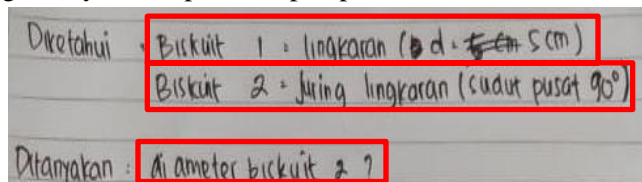 Diketahui : Biskuit 1 : lingkaran (d = 5 cm)
Biskuit 2 = Juring lingkaran (sudut pusat 90°)
Ditanyakan : diameter biskuit 2 ?